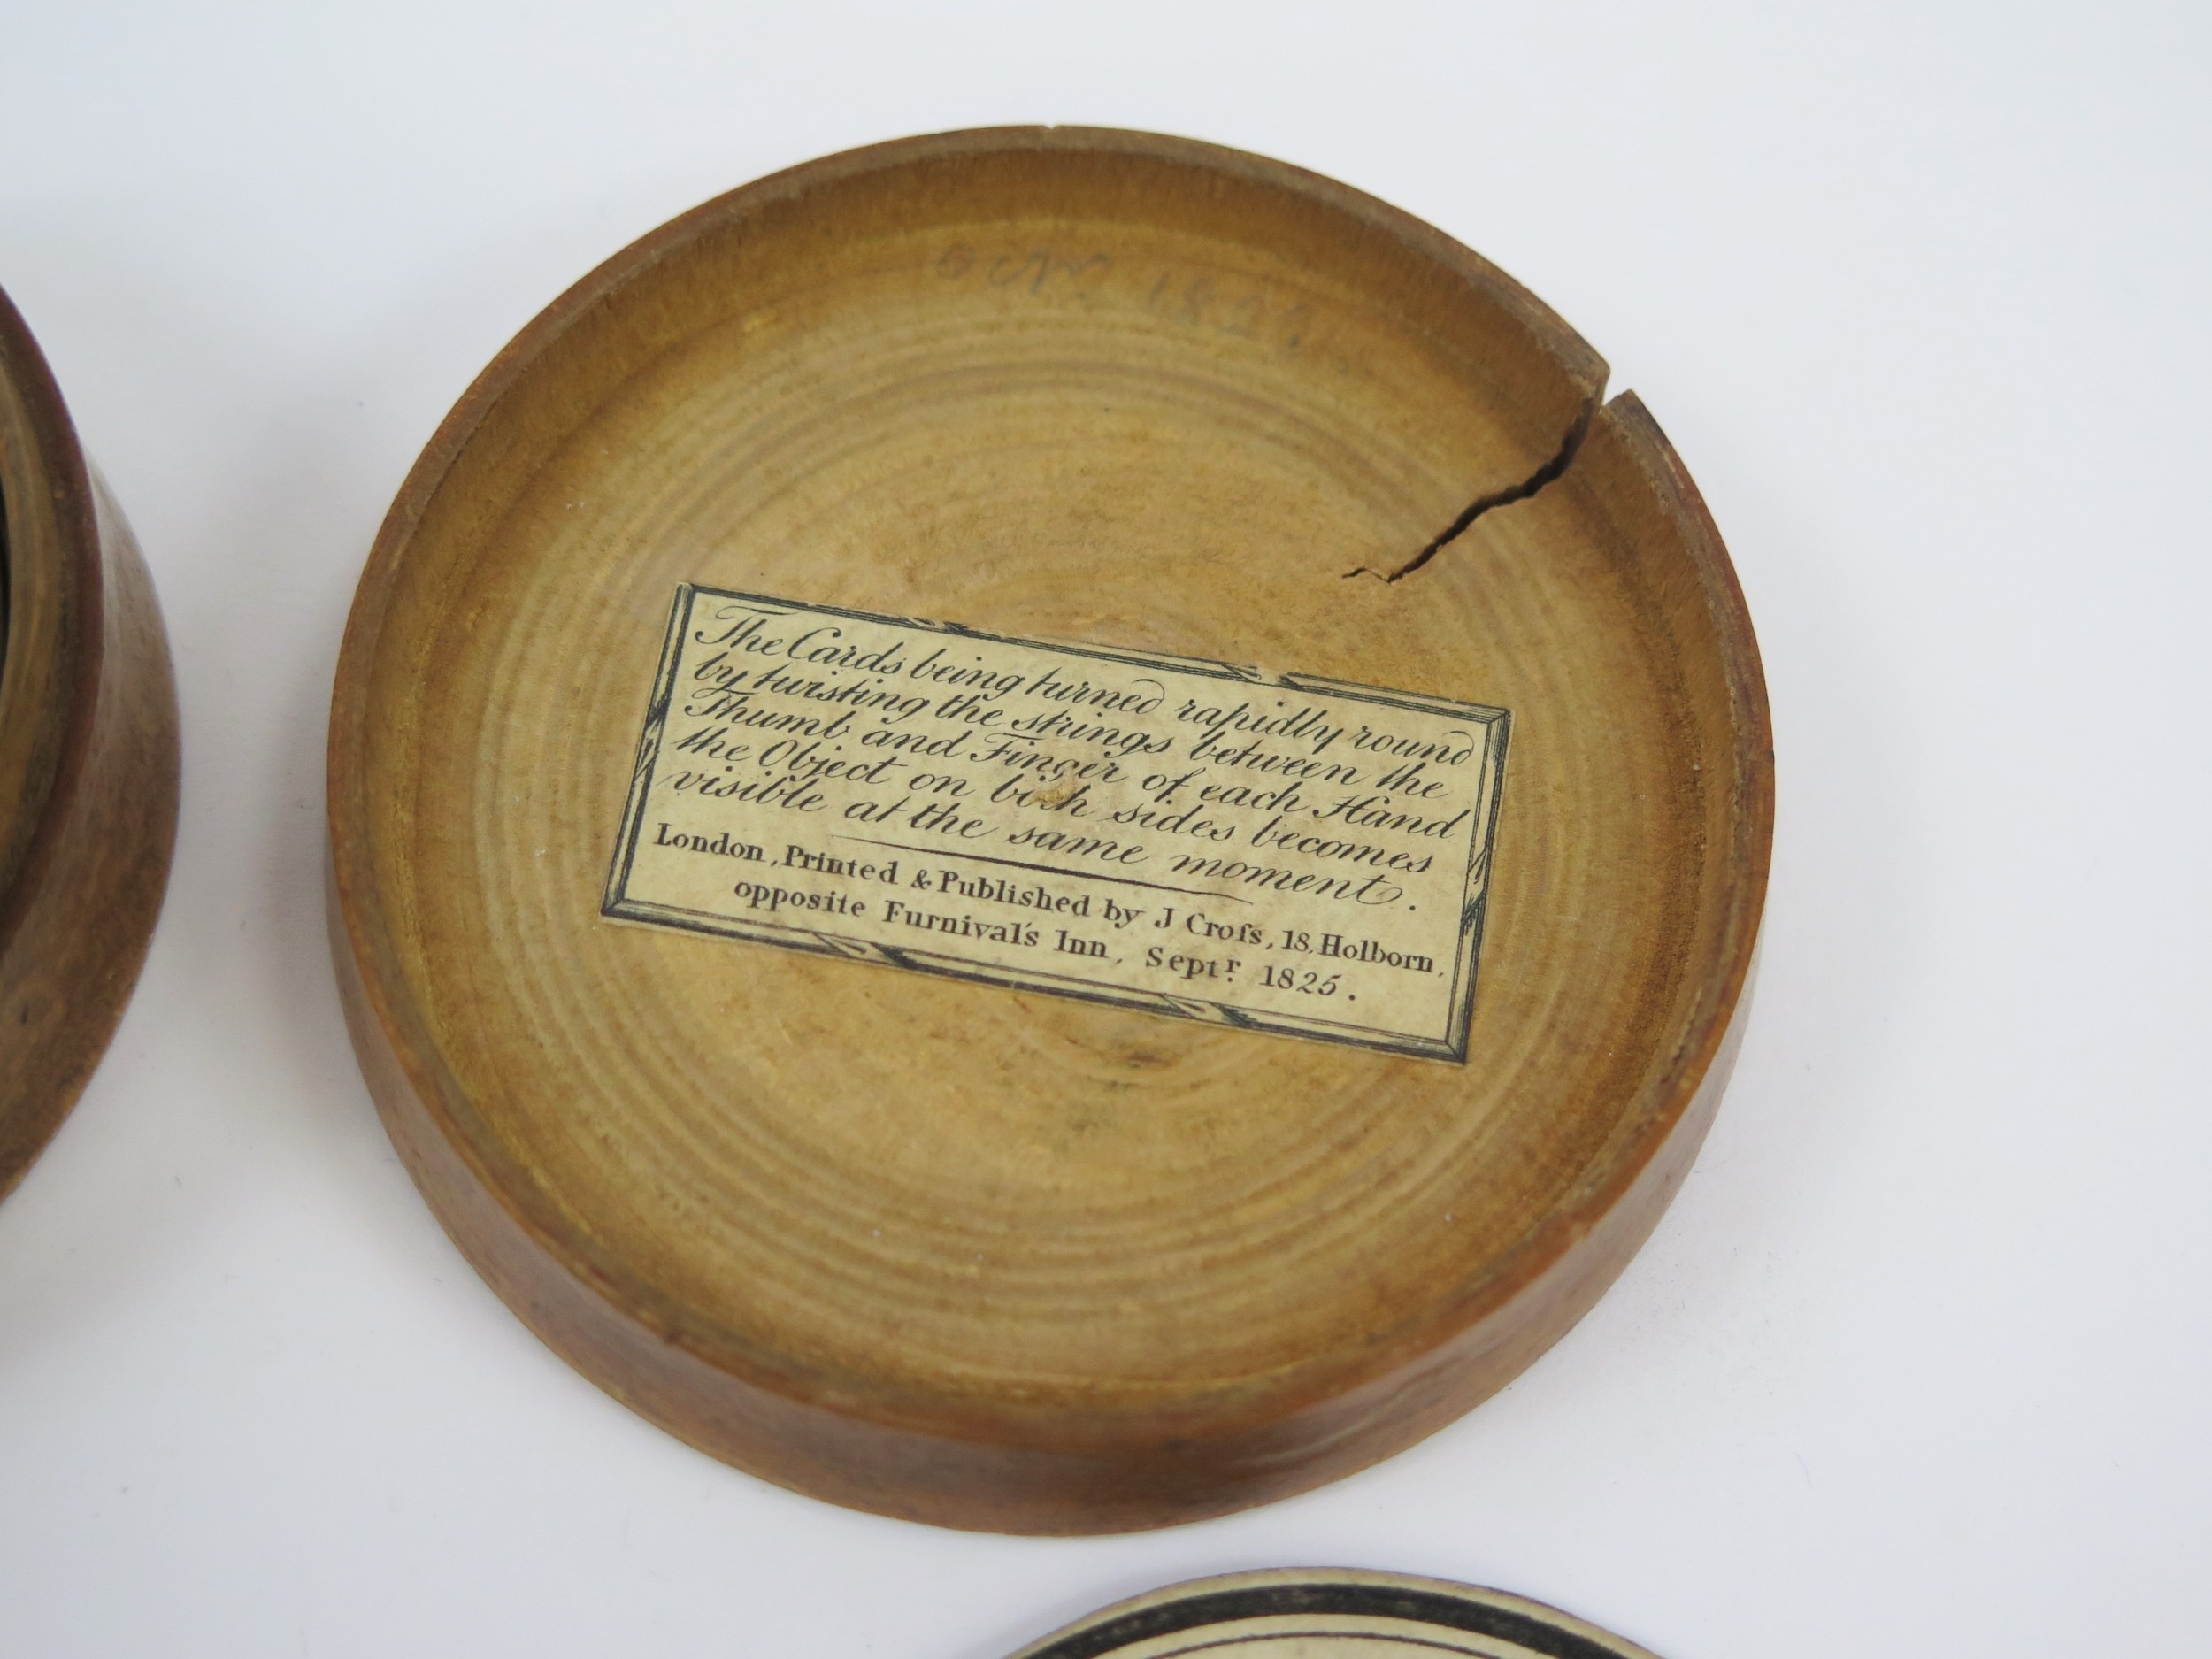 The Cards being turned rapidly round
by twisting the strings between the
Thumb and Finger of each Hand
the Object on both sides becomes
visible at the same moment.
London, Printed & Published by J Croſs, 18, Holborn,
opposite Furnival's Inn, Septr. 1825.